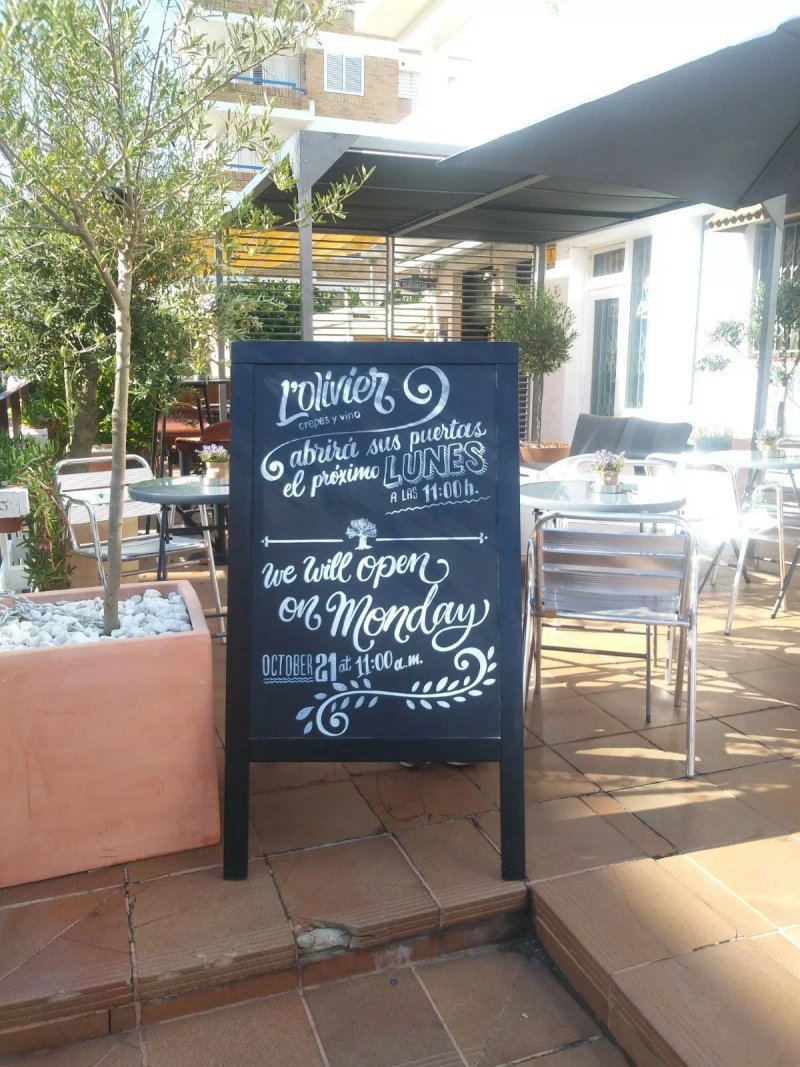 L'olivier
crepes y vino
abrirá sus puertas
el próximo LUNES
A LAS 11:00h.
we will open
on Monday
OCTOBER 21 at 11:00 a.m.